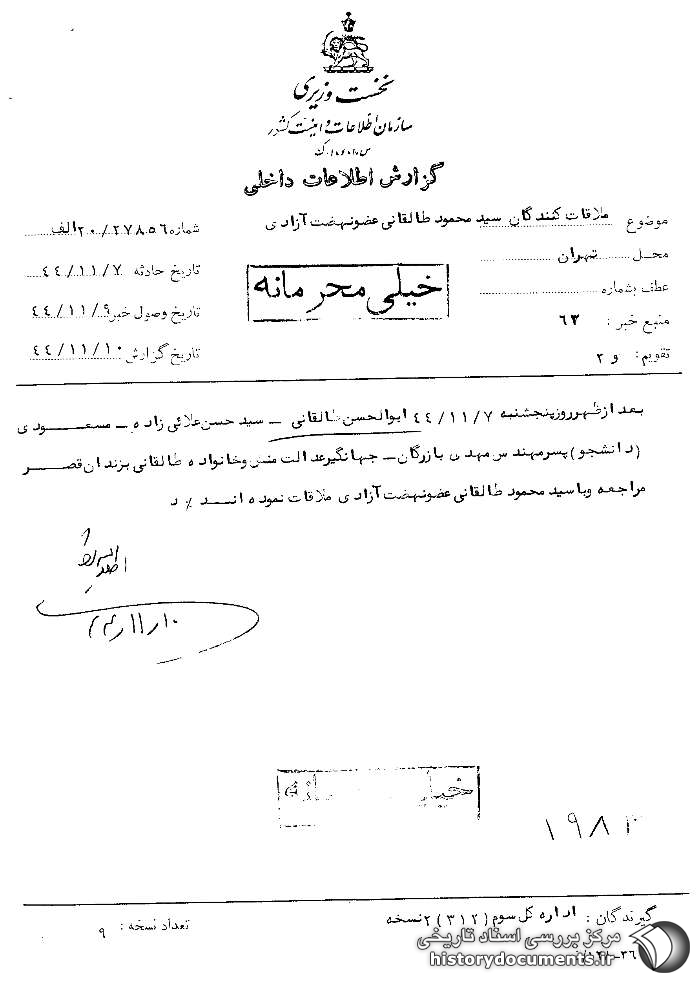 نخست وزیری
سازمان اطلاعات و امنیت کشور
گزارش اطلاعات داخلی
موضوع ملاقات کنندگان سید محمود طالقانی عضو نهضت آزادی
شماره ۲۰/۲۷۸۵۶ الف
محل تهران
تاریخ حادثه ۴۴/۱۱/۷
خیلی محرمانه
عطف بشماره
تاریخ وصول خبر ۴۴/۱۱/۹
منبع خبر : ۶۳
تاریخ گزارش ۴۴/۱۱/۱۰
تقویم : و ۲
بعد از ظهر روز پنجشنبه ۴۴/۱۱/۷ ابوالحسن طالقانی ـ سید حسن علائی زاده ـ مسعودی
(دانشجو) پسر مهندس مهدی بازرگان ـ جهانگیر عدالت منش و خانواده طالقانی بزندان قصر
مراجعه و با سید محمود طالقانی عضو نهضت آزادی ملاقات نموده اند ٪ د
خیلی محرمانه
گیرندگان : اداره کل سوم (۳۱۲) ۲ نسخه
تعداد نسخه : ۹
مرکز بررسی اسناد تاریخی
historydocuments.ir